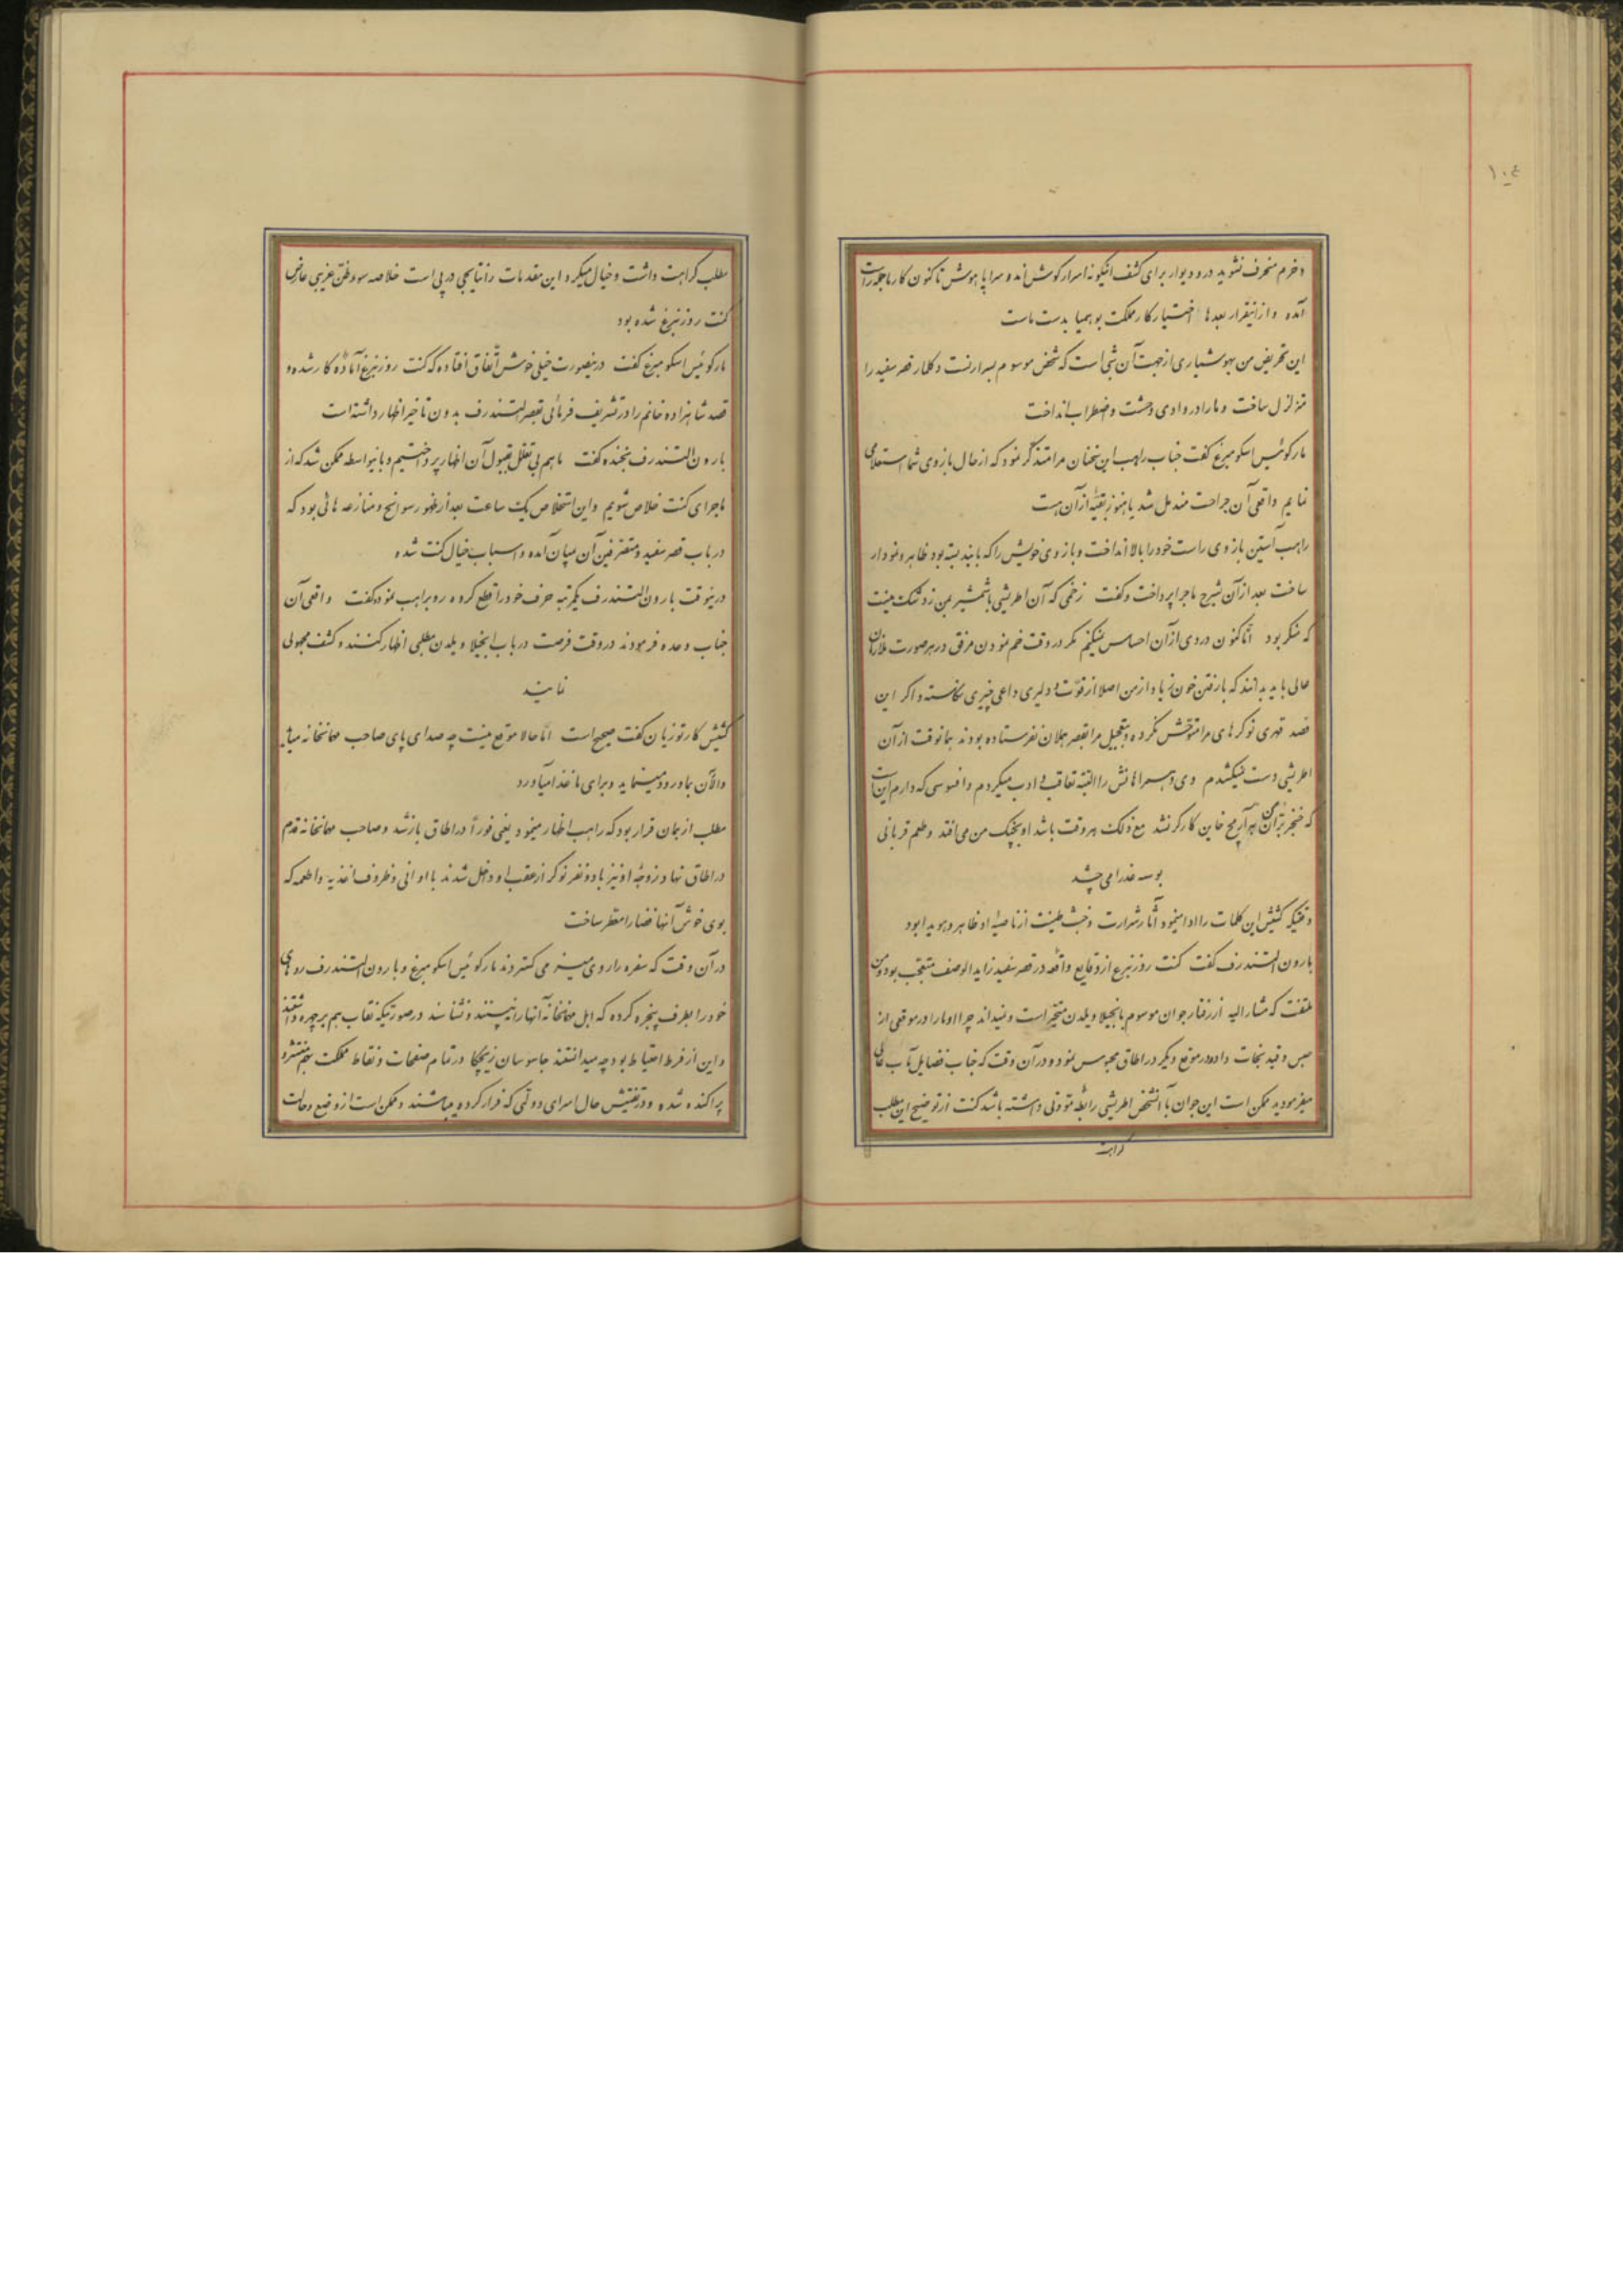 ۱۰۴
و خرم منحرف نشوید در و دیوار برای کشف اینگونه اسرار گوش اند و سراپا هوش تا کنون کار ما جور راست
آمده و از اینقرار بعدها اختیار کار مملکت بوهمیا بدست ماست
این تحریض من بهوشیاری از جهت آن شبی است که شخص موسوم بسرارنست دکلمار قصر سفید را
متزلزل ساخت و ما را در وادی وحشت و اضطراب انداخت
مارکوئیس اسکومبرغ گفت جناب راهب این سخنان مرا متذکر نمود که از حال بازوی شما استعلامی
نمایم واقعی آن جراحت مندمل شد یا هنوز بقیۀ از آن هست
راهب آستین بازوی راست خود را بالا انداخت و بازوی خویش را که با بند بسته بود ظاهر و نمودار
ساخت بعد از آن بشرح ماجرا پرداخت و گفت زخمی که آن اطریشی با شمشیر بمن زد شک نیست
که منکر بود اما کنون دردی از آن احساس نمیکنم مگر در وقت خم نمودن مرفق در هر صورت ملازمان
عالی باید بدانند که با رفتن خون زیاد از من اصلا از قوت و دلیری داعی چیزی نکاسته و اگر این
قصد قهری نوکرهای مرا متوحش نکرده و بتعجیل مرا بقصر هملان نفرستاده بودند همانوقت از آن
اطریشی دست نمیکشیدم وی و همراهانش را البته تعاقب و ادب میکردم و افسوسی که دارم این است
که خنجر بران من بر آن خاین کارگر نشد مع ذلک هر وقت باشد او بچنگ من می افتد و طعم قربانی
بوسه عذرا می چشد
وقتیکه کشیش این کلمات را ادا مینمود آثار شرارت و خبث طینت از ناصیۀ او ظاهر و هویدا بود
بارون التندرف گفت کنت روزنبرغ از وقایع واقعه در قصر سفید زاید الوصف متعجب بود و من
ملتفت که مشار الیه از رفتار جوان موسوم بانجیلا ویلدن متحیر است و نمیداند چرا او ما را در موقعی از
حبس و قید نجات داد و در موقع دیگر در اطاق محبوس نمود و در آن وقت که جناب فضایل مآب عالی
میفرمودید ممکن است این جوان با آنشخص اطریشی رابطه مودتی داشته باشد کنت از توضیح این مطلب
کراهت
مطلب کراهت داشت و خیال میکرد این مقدمات را نتایجی در پی است خلاصه سوء ظن غریبی عارض
کنت روزنبرغ شده بود
مارکوئیس اسکومبرغ گفت در نصورت خیلی خوش اتفاق افتاده که کنت روزنبرغ آمادۀ کار شده و
قصد شاهزاده خانم را در تشریف فرمائی بقصر التندرف بدون تاخیر اظهار داشته است
بارون التندرف بخنده گفت ما هم بی تعلل بقبول آن اظهار پرداختیم و باینواسطه ممکن شد که از
ماجرای کنت خلاص شویم و این استخلاص یک ساعت بعد از ظهور سوانح و منازعه هائی بود که
در باب قصر سفید و متصرفین آن بمیان آمده و اسباب خیال کنت شده
در ینوقت بارون التندرف یکمرتبه حرف خود را قطع کرده رو براهب نموده گفت واقعی آن
جناب وعده فرمودند در وقت فرصت در باب انجیلا ویلدن مطلبی اظهار کنند و کشف مجهولی
نمایند
کشیش کارتوزیان گفت صحیح است اما حالا موقع نیست چه صدای پای صاحب مهمانخانه میاید
و الآن بما ورود مینماید و برای ما غذا میآورد
مطلب از همان قرار بود که راهب اظهار مینمود یعنی فوراً در اطاق باز شد و صاحب مهمانخانه قدم
در اطاق نهاد و زوجۀ او نیز با دو نفر نوکر از عقب او داخل شدند با اوانی و ظروف اغذیه و اطعمه که
بوی خوش آنها فضا را معطر ساخت
در آن وقت که سفره را روی میز می گستردند مارکوئیس اسکومبرغ و بارون التندرف روهای
خود را بطرف پنجره کرده که اهل مهمانخانه آنها را نبینند و نشناسند در صورتیکه نقاب هم بر چهره داشتند
و این از فرط احتیاط بود چه میدانستند جاسوسان زیجکا در تمام صفحات و نقاط مملکت بوهم منتشر و
پراکنده شده و در تفتیش حال امرای دولتی که فرار کرده میباشند و ممکن است از وضع و حالت